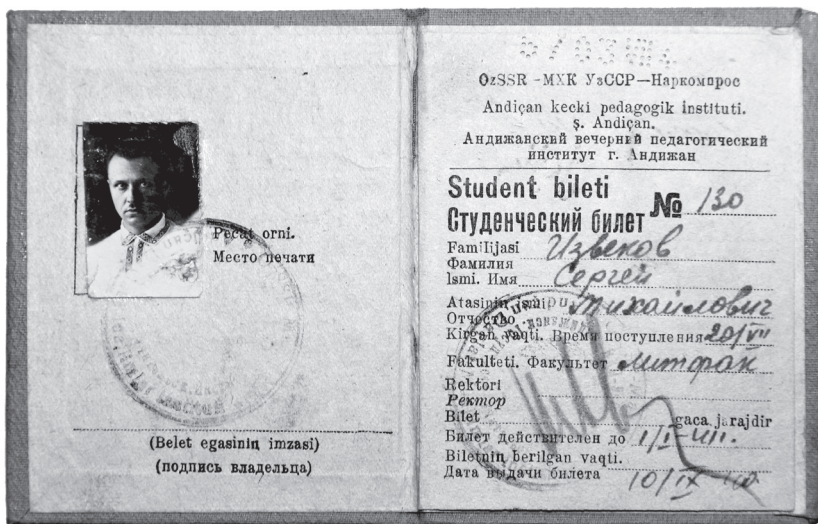 Pecat orni.
Место печати
(Belet egasiniņ imzasi)
(подпись владельца)
OzSSR -МХК УзССР—Наркомпрос
Andiçan kecki pedagogik instituti.
ş. Andiçan.
Андижанский вечерний педагогический
институт г. Андижан
Student bileti
Студенческий билет № 130
Familijasi
Фамилия Извеков
Ismi. Имя Сергей
Atasiniņ ismi
Отчество Михайлович
Kirgan vaqti. Время поступления 20/VII
Fakulteti. Факультет литфак
Rektori
Ректор
Bilet gaca jarajdir
Билет действителен до 1/I-41г.
Biletniņ berilgan vaqti.
Дата выдачи билета 10/IX 40